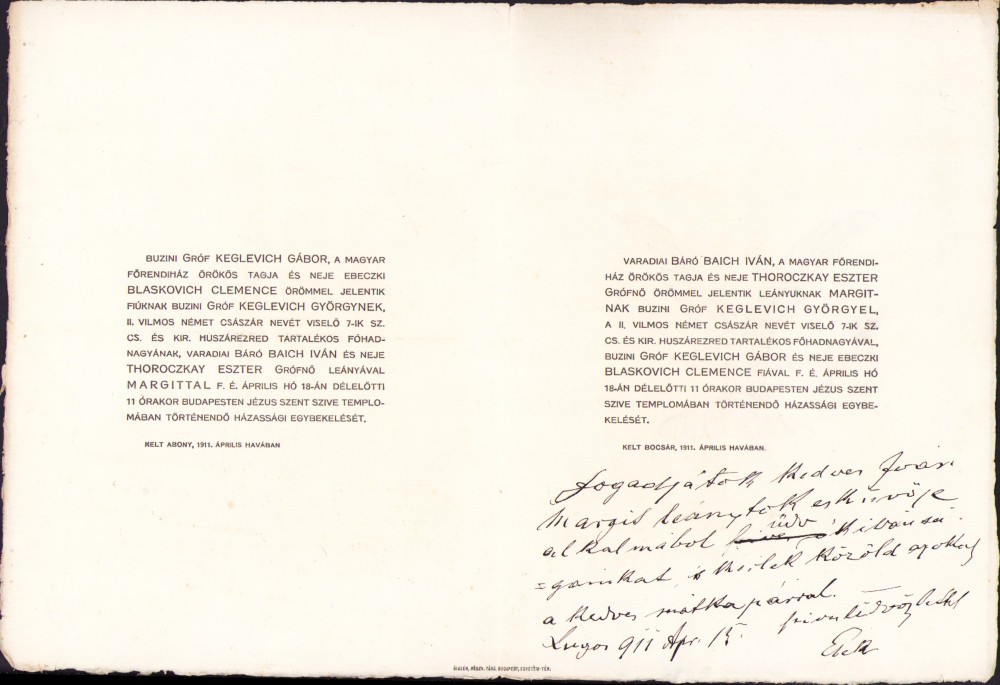 BUZINI GRÓF KEGLEVICH GÁBOR, A MAGYAR
FŐRENDIHÁZ ÖRÖKÖS TAGJA ÉS NEJE EBECZKI
BLASKOVICH CLEMENCE ÖRÖMMEL JELENTIK
FIÚKNAK BUZINI GRÓF KEGLEVICH GYÖRGYNEK,
II. VILMOS NÉMET CSÁSZÁR NEVÉT VISELŐ 7-IK SZ.
CS. ÉS KIR. HUSZÁREZRED TARTALÉKOS FŐHAD-
NAGYÁNAK, VARADIAI BÁRÓ BAICH IVÁN ÉS NEJE
THOROCZKAY ESZTER GRÓFNŐ LEÁNYÁVAL
MARGITTAL F. É. ÁPRILIS HÓ 18-ÁN DÉLELŐTTI
11 ÓRAKOR BUDAPESTEN JÉZUS SZENT SZIVE TEMPLO-
MÁBAN TÖRTÉNENDŐ HÁZASSÁGI EGYBEKELÉSÉT.
KELT ABONY, 1911. ÁPRILIS HAVÁBAN
VARADIAI BÁRÓ BAICH IVÁN, A MAGYAR FŐRENDI-
HÁZ ÖRÖKÖS TAGJA ÉS NEJE THOROCZKAY ESZTER
GRÓFNŐ ÖRÖMMEL JELENTIK LEÁNYUKNAK MARGIT-
NAK BUZINI GRÓF KEGLEVICH GYÖRGYEL,
A II. VILMOS NÉMET CSÁSZÁR NEVÉT VISELŐ 7-IK SZ.
CS. ÉS KIR. HUSZÁREZRED TARTALÉKOS FŐHADNAGYÁVAL,
BUZINI GRÓF KEGLEVICH GÁBOR ÉS NEJE EBECZKI
BLASKOVICH CLEMENCE FIÁVAL F. É. ÁPRILIS HÓ
18-ÁN DÉLELŐTTI 11 ÓRAKOR BUDAPESTEN JÉZUS SZENT
SZIVE TEMPLOMÁBAN TÖRTÉNENDŐ HÁZASSÁGI EGYBE-
KELÉSÉT.
KELT BOCSÁR, 1911. ÁPRILIS HAVÁBAN.
Fogadjátok kedves Iván
Margit leánytok esküvője
alkalmából üdv kivánsá
=gainkat, közöld azokat
a kedves mátka párral.
Lugos 911 Apr 15.